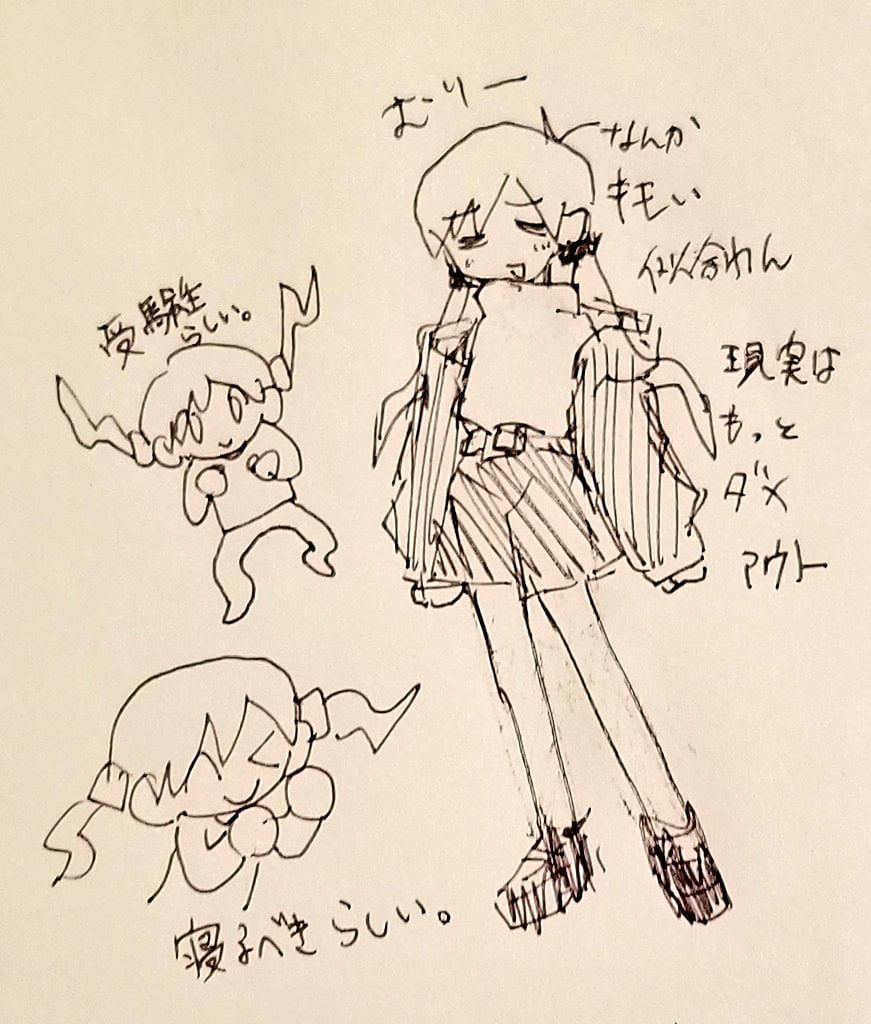 むりー
なんか
キモい
似合わん
現実は
もっと
ダメ
アウト
受験生
らしい。
寝るべきらしい。